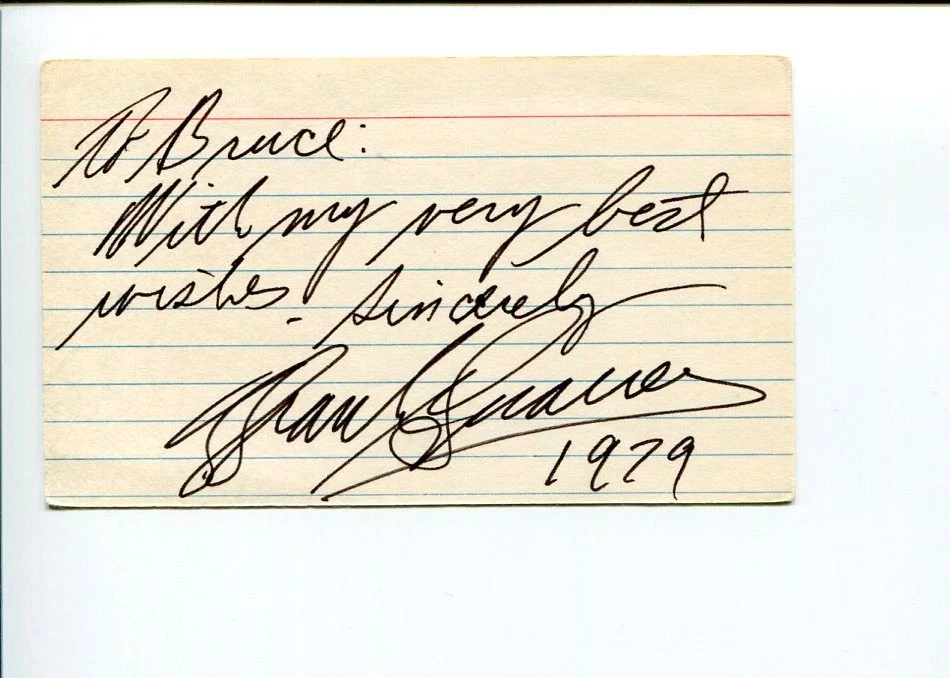 To Bruce:
With my very best
wishes. Sincerely
Frank
1979